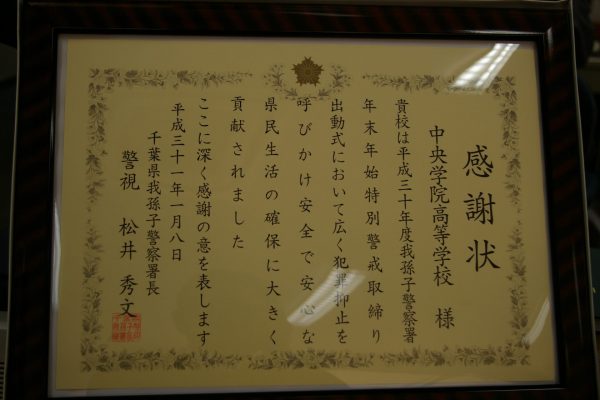 感謝状
中央学院高等学校 様
貴校は平成三十年度我孫子警察署
年末年始特別警戒取締り
出動式において広く犯罪抑止を
呼びかけ安全で安心な
県民生活の確保に大きく
貢献されました
ここに深く感謝の意を表します
平成三十一年一月八日
千葉県我孫子警察署長
警視 松井 秀文